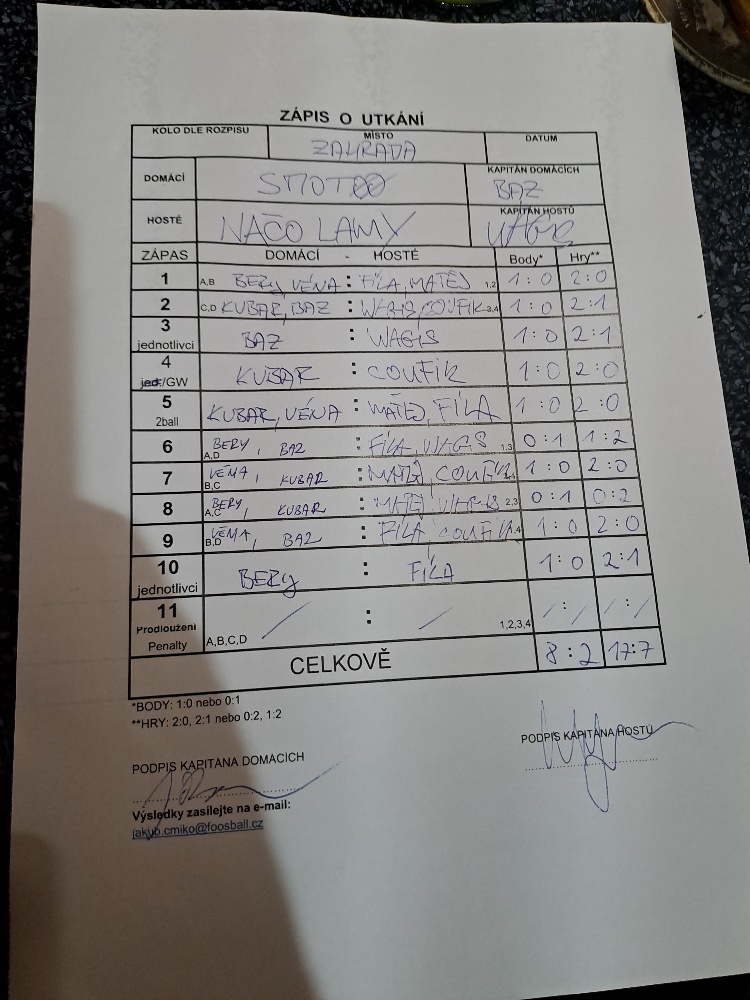 ZÁPIS O UTKÁNÍ
KOLO DLE ROZPISU MÍSTO DATUM
ZAHRADA
DOMÁCÍ KAPITÁN DOMÁCÍCH
BAZ
HOSTÉ NAČO LAMY KAPITÁN HOSTŮ
ZÁPAS DOMÁCÍ - HOSTÉ Body* Hry**
1 A,B BERY, VÉNA : FÍLA, MATĚJ 1,2 1:0 2:0
2 C,D KUBAR, BAZ : WAGIS, COUFIK 3,4 1:0 2:1
3 jednotlivci BAZ : WAGIS 1:0 2:1
4 jed./GW KUBAR : COUFIK 1:0 2:0
5 2ball KUBAR, VÉNA : MATĚJ, FÍLA 1:0 2:0
6 A,D BERY, BAZ : FÍLA, WAGIS 1,3 0:1 1:2
7 B,C VÉNA, KUBAR : MATĚJ, COUFIK 1:0 2:0
8 A,C BERY, KUBAR : MATĚJ, WAGIS 2,3 0:1 0:2
9 B,D VÉNA, BAZ : FÍLA, COUFIK 1:0 2:0
10 jednotlivci BERY : FÍLA 1:0 2:1
11 Prodloužení Penalty A,B,C,D / : / 1,2,3,4 /:/ /:/
CELKOVĚ 8:2 17:7
*BODY: 1:0 nebo 0:1
**HRY: 2:0, 2:1 nebo 0:2, 1:2
PODPIS KAPITÁNA DOMÁCÍCH PODPIS KAPITÁNA HOSTŮ
Výsledky zasílejte na e-mail:
jakub.cmiko@foosball.cz